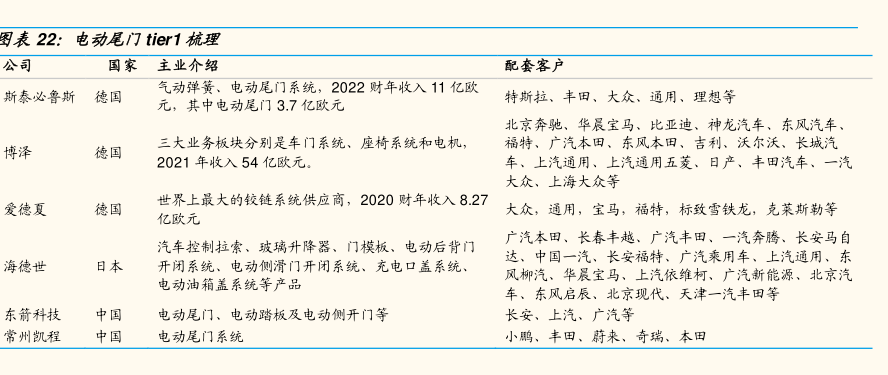 图表 22：电动尾门 tier1 梳理
公司 国家 主业介绍 配套客户
斯泰必鲁斯 德国 气动弹簧、电动尾门系统，2022 财年收入 11 亿欧
元，其中电动尾门 3.7 亿欧元 特斯拉、丰田、大众、通用、理想等
博泽 德国 三大业务板块分别是车门系统、座椅系统和电机，
2021 年收入 54 亿欧元。
北京奔驰、华晨宝马、比亚迪、神龙汽车、东风汽车、
福特、广汽本田、东风本田、吉利、沃尔沃、长城汽
车、上汽通用、上汽通用五菱、日产、丰田汽车、一汽
大众、上海大众等
爱德夏 德国 世界上最大的铰链系统供应商，2020 财年收入 8.27
亿欧元 大众，通用，宝马，福特，标致雪铁龙，克莱斯勒等
海德世 日本 汽车控制拉索、玻璃升降器、门模板、电动后背门
开闭系统、电动侧滑门开闭系统、充电口盖系统、
电动油箱盖系统等产品
广汽本田、长春丰越、广汽丰田、一汽奔腾、长安马自
达、中国一汽、长安福特、广汽乘用车、上汽通用、东
风柳汽、华晨宝马、上汽依维柯、广汽新能源、北京汽
车、东风启辰、北京现代、天津一汽丰田等
东箭科技 中国 电动尾门、电动踏板及电动侧开门等 长安、上汽、广汽等
常州凯程 中国 电动尾门系统 小鹏、丰田、蔚来、奇瑞、本田